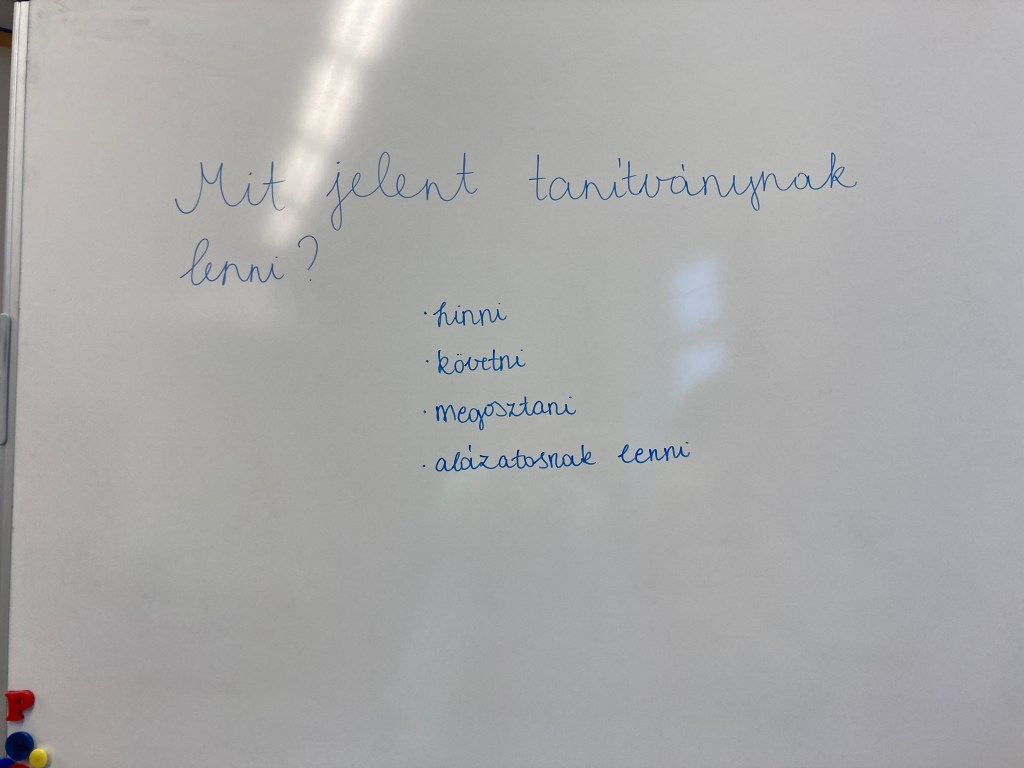 Mit jelent tanítványnak
lenni?
· hinni
· követni
· megosztani
· alázatosnak lenni
P